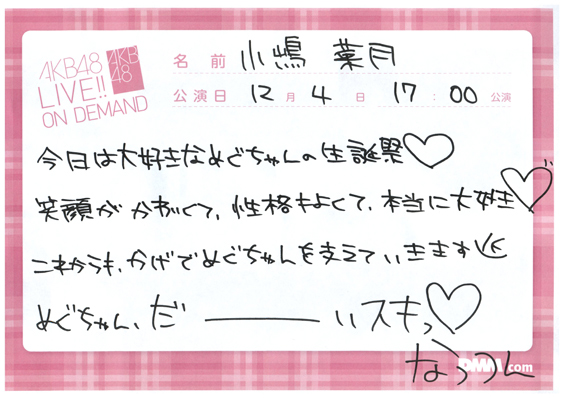 AKB48
LIVE!!
ON DEMAND
AKB
48
名前 小嶋 菜月
公演日 12月 4日 17:00公演
今日は大好きなめぐちゃんの生誕祭♡
笑顔がかわいくて、性格もよくて、本当に大好き♡
これからも、かげでめぐちゃんを支えていきます
めぐちゃん、だ―――いスキっ♡
なっつん
DMM.com